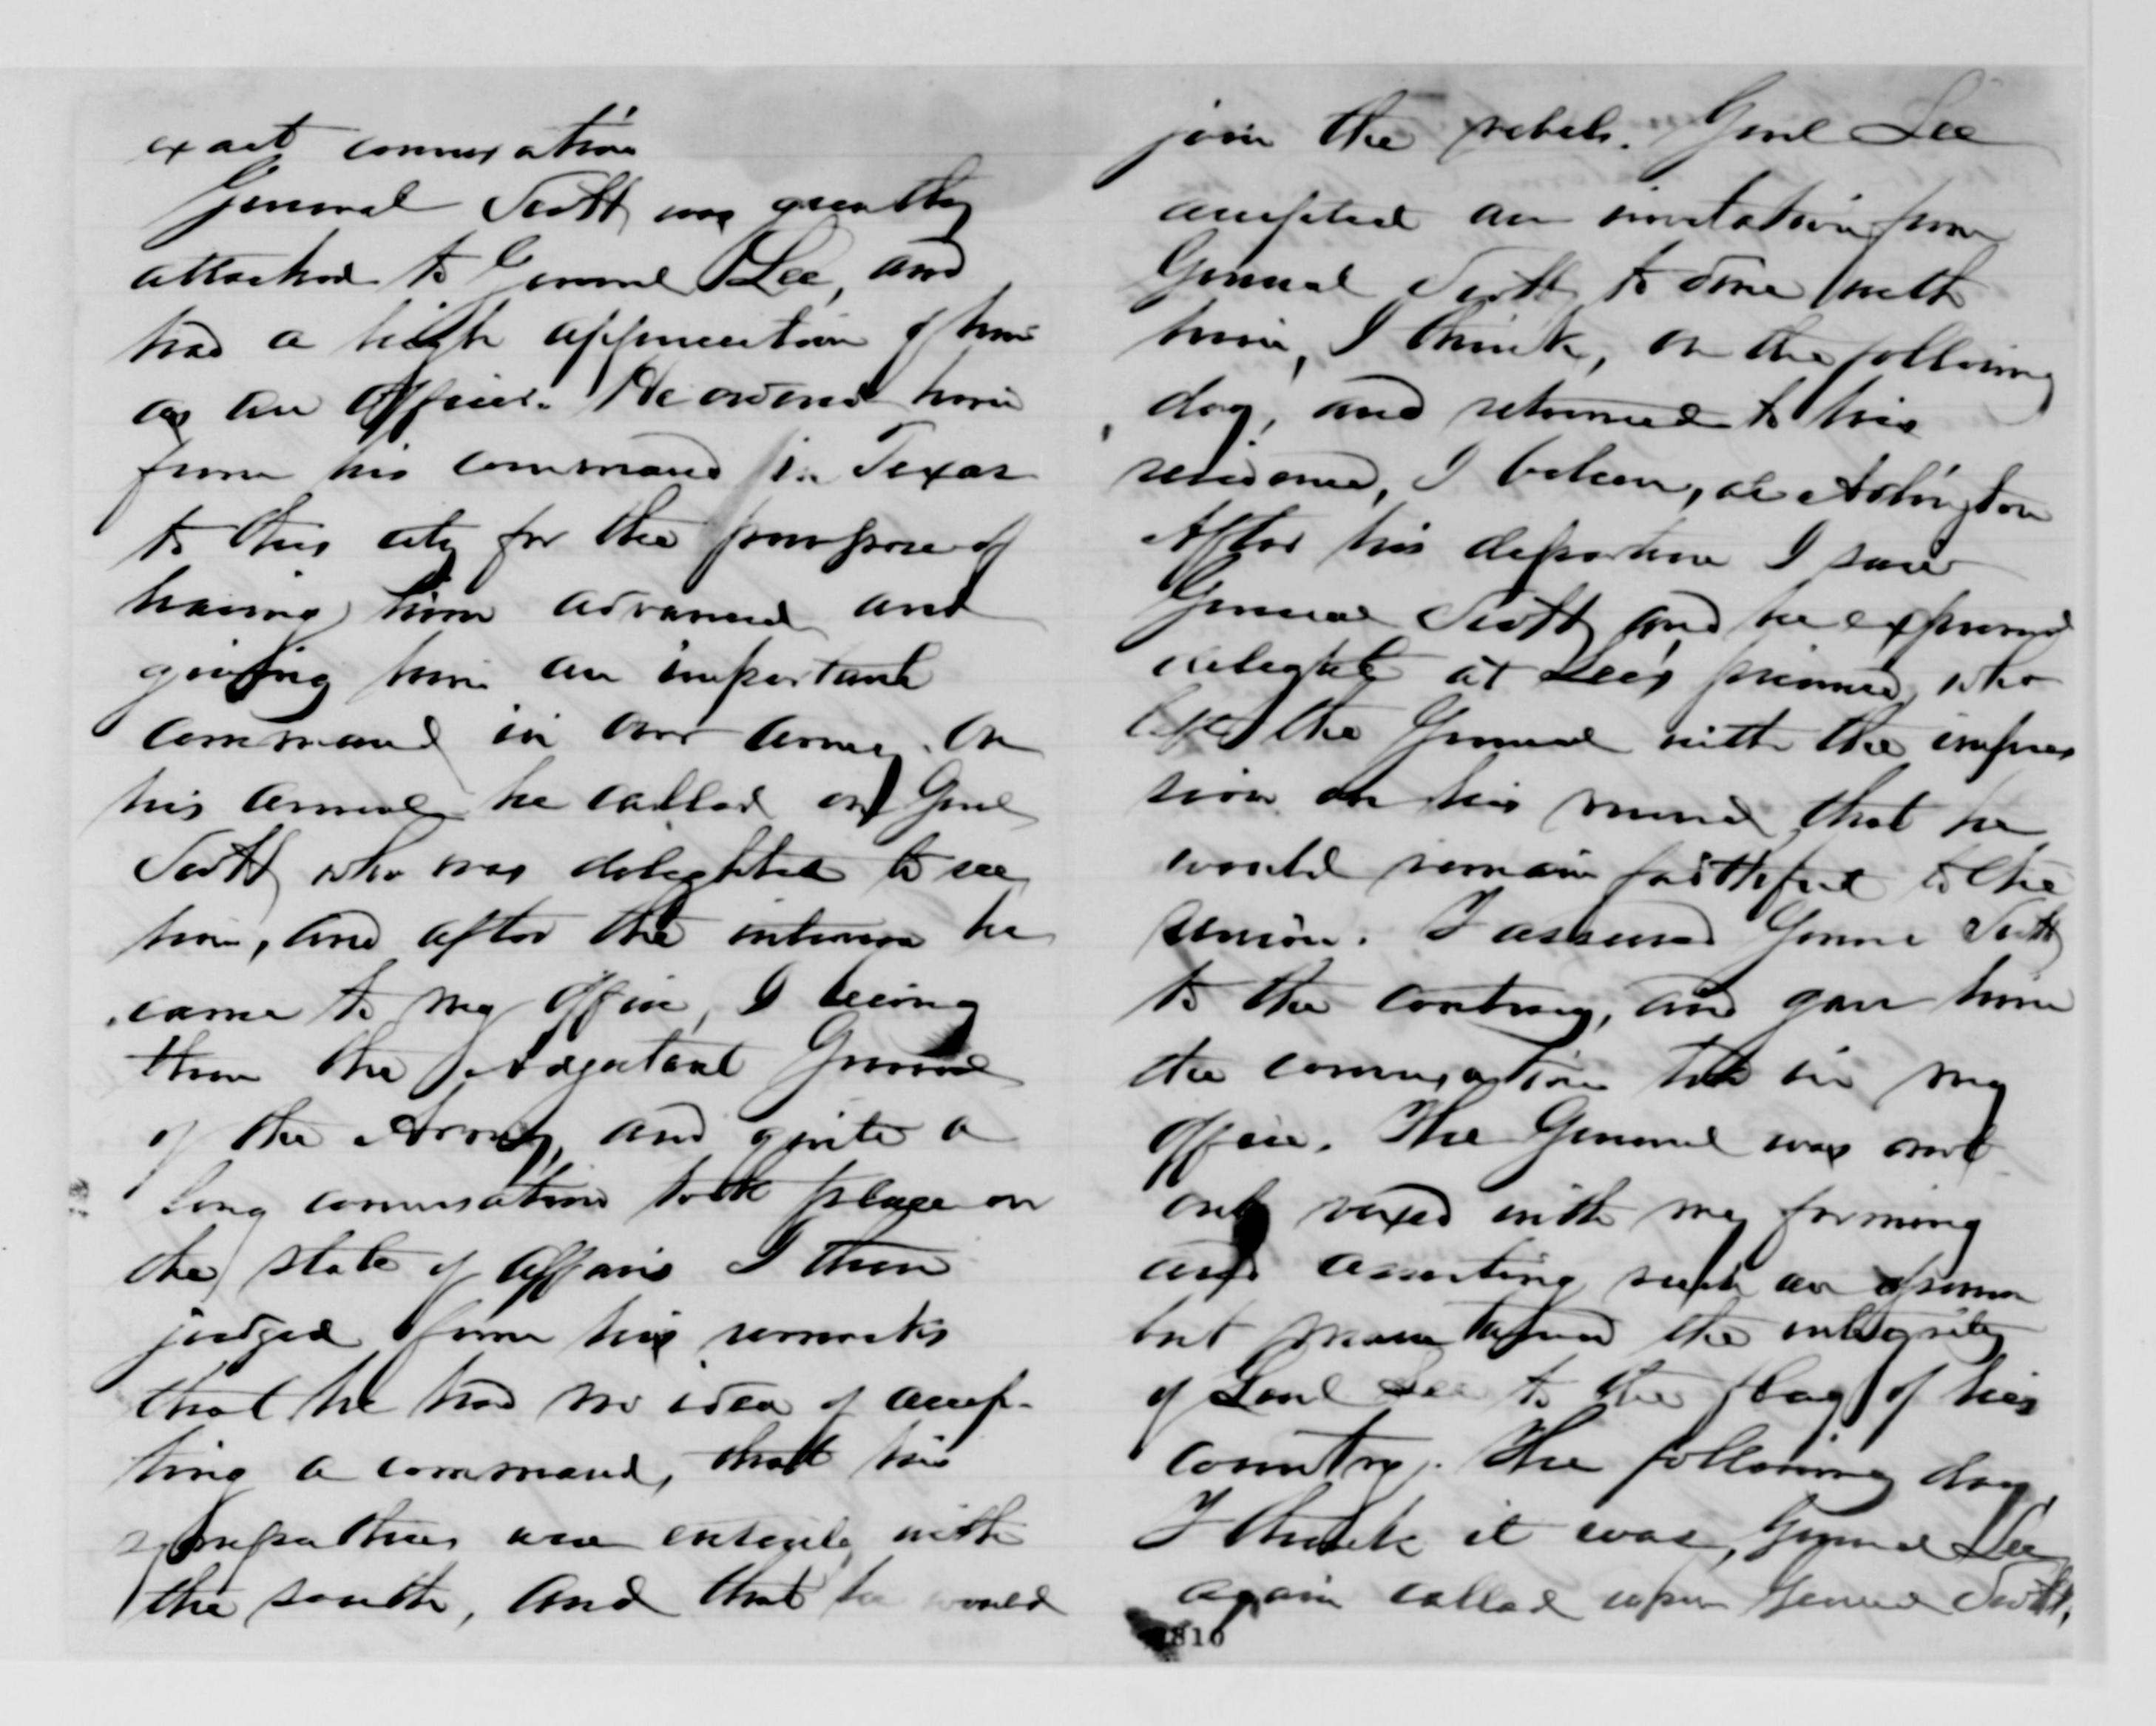 exact conversation
General Scott was greatly
attached to General Lee, and
had a high appreciation of him
as an officer. He ordered him
from his command in Texas
to this city for the purpose of
having him advanced and
giving him an important
command in our army. On
his arrival he called on Genl
Scott who was delighted to see
him, and after the interview he
came to my office, I being
then the Adjutant General
of the Army, and quite a
long conversation took place on
the state of affairs I then
judged from his remarks
that he had no idea of accep-
ting a command, that his
sympathies were entirely with
the south, and that he would
join the rebels. Genl Lee
accepted an invitation from
General Scott to dine with
him, I think, on the following
day, and returned to his
residence, I believe, at Arlington
After his departure I saw
General Scott and he expressed
delight at Lee's who
left the General with the impres
sion on his mind that he
would remain faithful to the
union. I assured General Scott
to the contrary, and gave him
the conversation had in my
office. The General was not
only vexed with my forming
and asserting such an opinion
but maintained the integrity
of Genl Lee to the flag of his
country. The following day
I think it was, General Lee
again called upon General Scott,
810